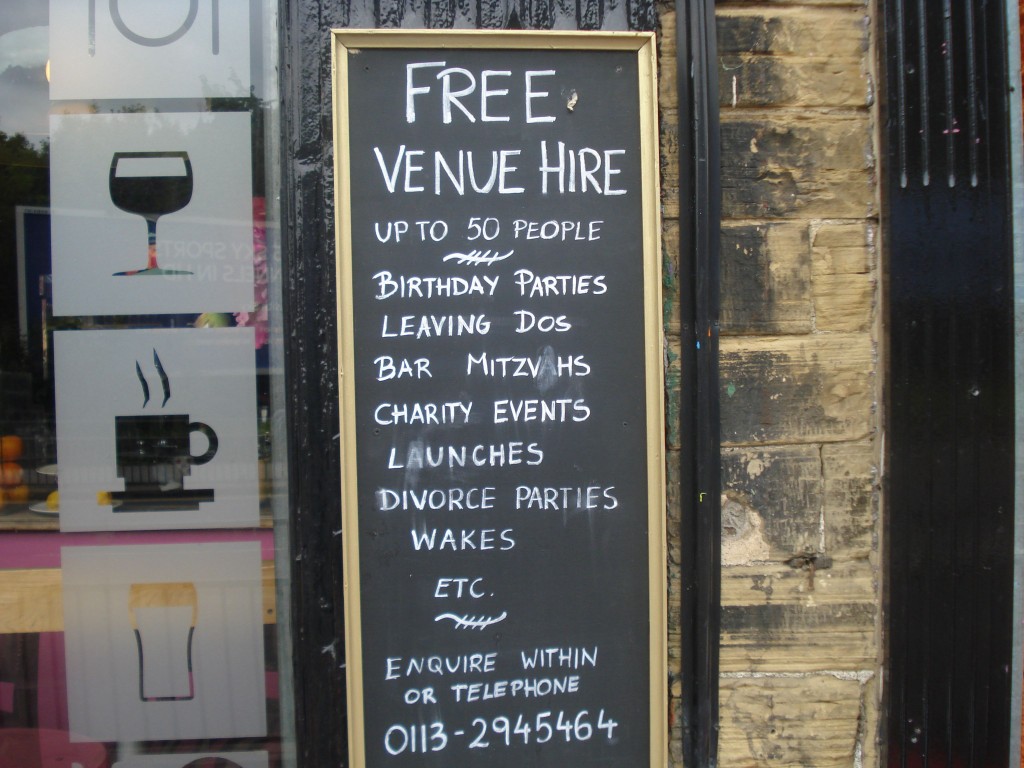 FREE
VENUE HIRE
UP TO 50 PEOPLE
BIRTHDAY PARTIES
LEAVING DOS
BAR MITZVAHS
CHARITY EVENTS
LAUNCHES
DIVORCE PARTIES
WAKES
ETC.
ENQUIRE WITHIN
OR TELEPHONE
0113-2945464